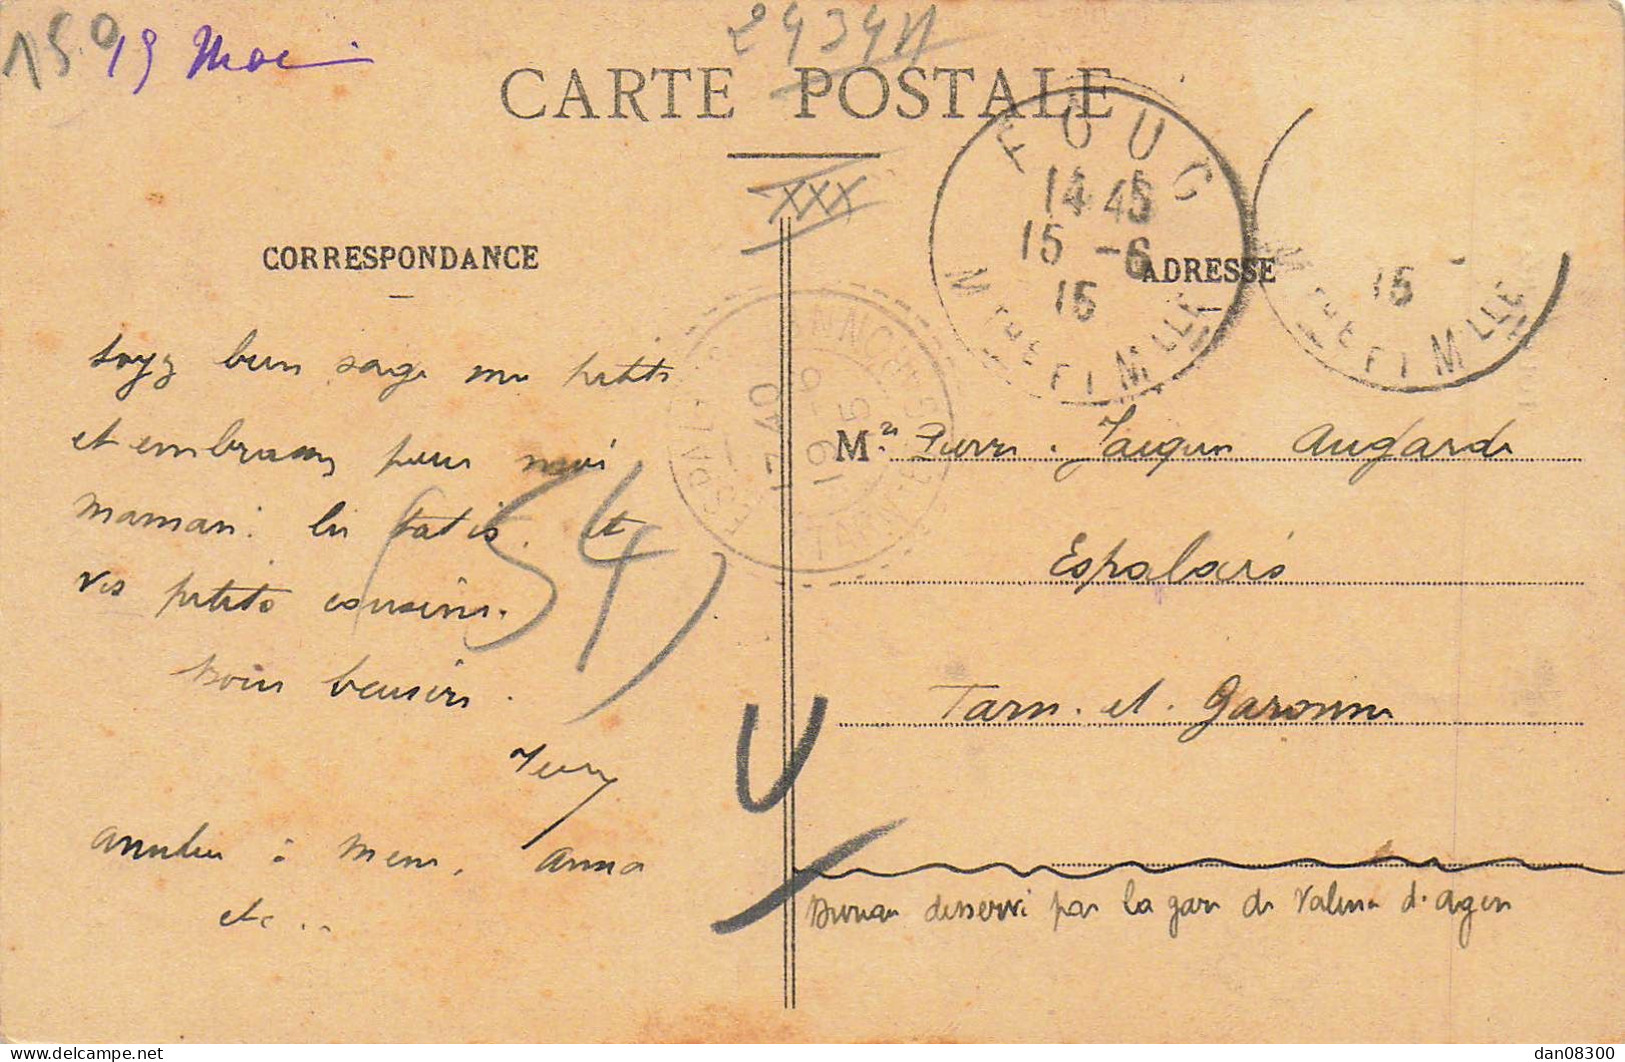 15.0 19 Mai
2434
CARTE POSTALE
XXX
FOUG
14 45
15 -6
15
MTHE ET MLLE
15 -
MTHE ET MLLE
CORRESPONDANCE
ADRESSE
ESPALAIS
17 40
19 -6
15
TARN-ET-G
soyez bien sage mes petits
et embrassez pour moi
maman. les tatis. et
vos petits cousins.
bons baisers.
(54)
amitiés à Mem, Anna
etc...
Mrs. Pierre. Jacques Augarde
Espalais
Tarn. et. Garonne
Bureau desservi par la gare de Valence d'Agen
dan08300